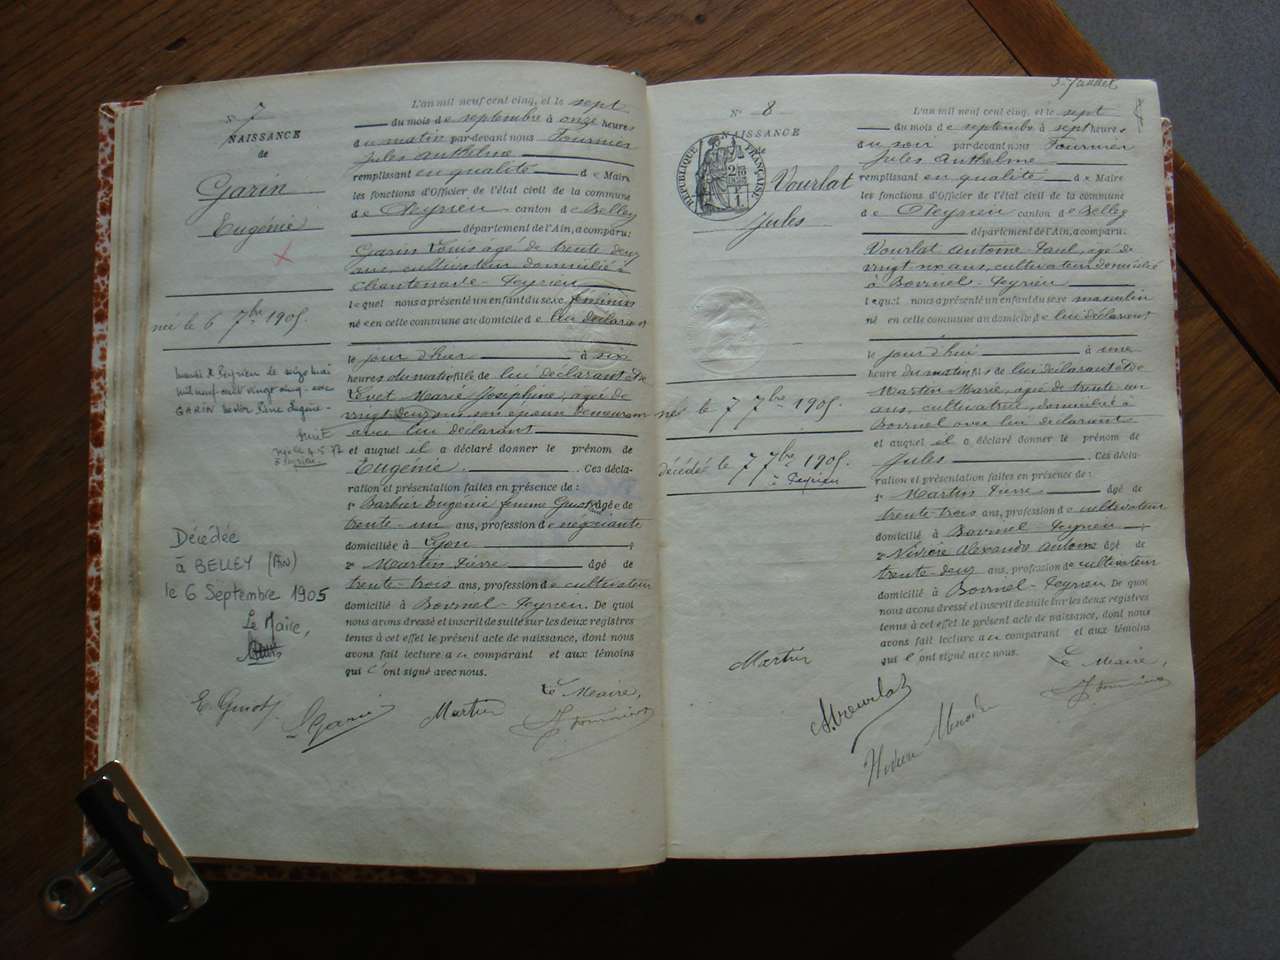 N° 7
NAISSANCE
de
Garin
Eugénie
né le 6 7bre 1905
GARIN
Décédée
à BELLEY (Ain)
le 6 Septembre 1905
Le Maire,
L'an mil neuf cent cinq, et le sept
du mois de septembre à onze heures
du matin par-devant nous Fournier
Jules Anthelme
remplissant en qualité de Maire
les fonctions d'Officier de l'état civil de la commune
de Peyrieu canton de Belley
département de l'Ain, a comparu:
Garin Louis âgé de trente deux
ans, cultivateur domicilié à
Peyrieu
lequel nous a présenté un enfant du sexe féminin
née en cette commune au domicile de lui déclarant
le jour d'hier à six
heures du matin fille de lui déclarant et de
Marie Joséphine, âgée de
vingt deux ans son épouse demeurant
avec lui déclarant
et auquel il a déclaré donner le prénom de
Eugénie. Ces décla-
ration et présentation faites en présence de:
1° Barbier Eugénie femme Guiot âgée de
trente-un ans, profession de négociante
domiciliée à Lyon;
2° Martin Pierre âgé de
trente-trois ans, profession de cultivateur
domicilié à Peyrieu. De quoi
nous avons dressé et inscrit de suite sur les deux registres
tenus à cet effet le présent acte de naissance, dont nous
avons fait lecture au comparant et aux témoins
qui l'ont signé avec nous.
Le Maire,
E. Guiot L. Garin Martin J. Fournier
N° 8
NAISSANCE
de
RÉPUBLIQUE FRANÇAISE
Vourlat
Jules
né le 7 7bre 1905.
décédé le 7 7bre 1905.
à Peyrieu
L'an mil neuf cent cinq, et le sept
du mois de septembre à sept heures
du soir par-devant nous Fournier
Jules Anthelme
remplissant en qualité de Maire
les fonctions d'Officier de l'état civil de la commune
de Peyrieu canton de Belley
département de l'Ain, a comparu:
Vourlat Antoine Paul, âgé de
vingt six ans, cultivateur domicilié
à Peyrieu
lequel nous a présenté un enfant du sexe masculin
né en cette commune au domicile de lui déclarant
le jour d'hui à une
heure du matin fils de lui déclarant et de
Martin Marie, âgée de trente un
ans, cultivatrice, domiciliée à
avec lui déclarant
et auquel il a déclaré donner le prénom de
Jules. Ces décla-
ration et présentation faites en présence de:
1° Martin Pierre âgé de
trente-trois ans, profession de cultivateur
domicilié à Peyrieu;
2° Alexandre Antoine âgé de
trente-deux ans, profession de cultivateur
domicilié à Peyrieu. De quoi
nous avons dressé et inscrit de suite sur les deux registres
tenus à cet effet le présent acte de naissance, dont nous
avons fait lecture au comparant et aux témoins
qui l'ont signé avec nous.
Martin Le Maire,
A. Vourlat J. Fournier